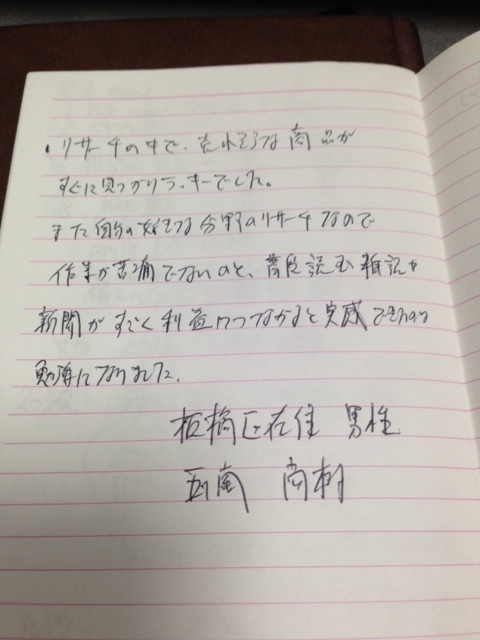 ・リサーチの中で、売れそうな商品が
すぐに見つかりラッキーでした。
また自分の好きな分野のリサーチなので
作業が苦痛でないのと、普段読む雑誌や
新聞がすごく利益につながると実感できたのは
勉強になりました。
板橋区在住 男性
五嵐 尚樹